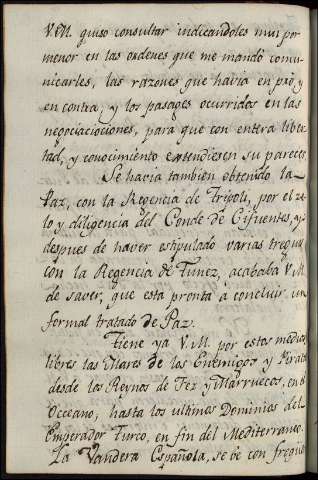 V.M. quiso consultar indicandoles mui por
menor en las ordenes que me mandó comu-
nicarles, las razones que havia en pro, y
en contra, y los pasages ocurridos en las
negociaciociones, para que con entera liber-
tad, y conocimiento extendiesen su parecer.
Se havia tambien obtenido la
Paz, con la Regencia de Tripoli, por el ze-
lo y diligencia del Conde de Cifuentes, y
despues de haver estipulado varias treguas
con la Regencia de Tunez, acababa V.M.
de saver, que esta pronta á concluir un
formal tratado de Paz.
Tiene ya V.M. por estos medios
libres las Mares de los Enemigos y Piratas
desde los Reynos de Fez y Marruecos, en el
Occeano, hasta los ultimos Dominios del
Emperador Turco, en fin del Mediterraneo.
La Vandera Española, se be con freqüe